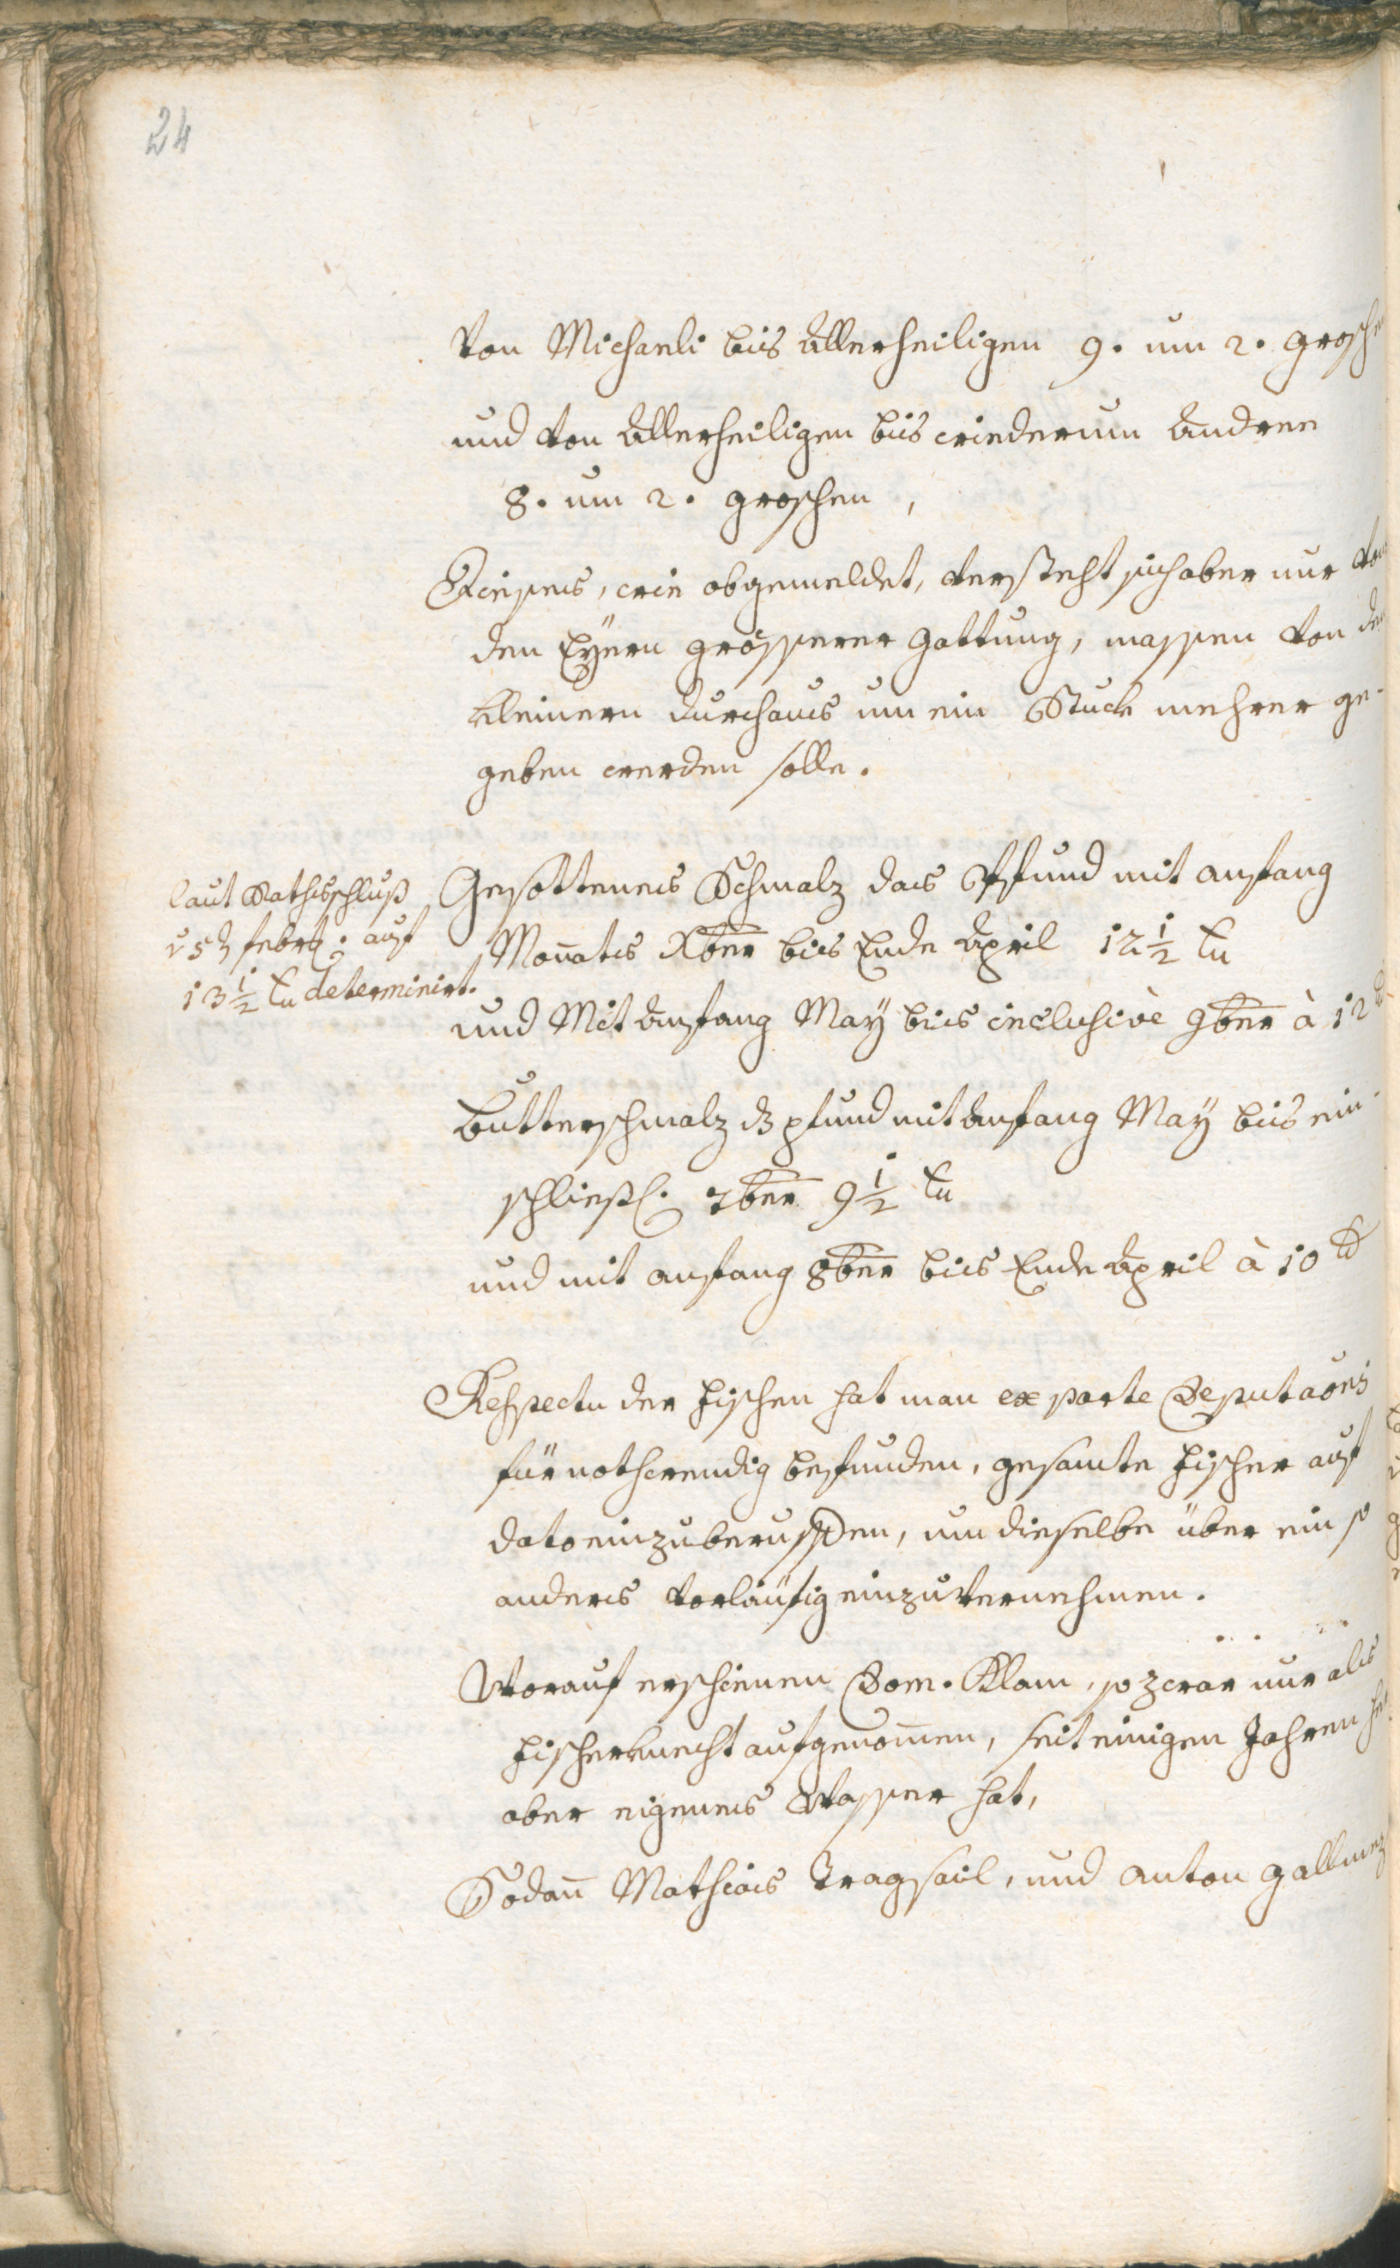 24
Von Michaeli bis Allerheiligen 9. um 2. grosch
und von Allerheiligen bis wiederum Andree
8. um 2. groschen,
Dieses, wie obgemeldet, versteht sich aber nur von
den Eÿern grösserer gattung, massen von den
kleinern durchaus um ein Stuck mehrer ge-
geben werden solle.
laut Rathsschluß
v 5t febr: auf
13 1/2 xr determinirt.
Gesottenes Schmalz das Pfund mit anfang
Monats Xber bis Ende April 12 1/2 xr
und Mit Anfang Maÿ bis inclusivè 9ber à 12
Butterschmalz ds pfund mit Anfang Maÿ bis ein-
schließl. 7ber 9 1/2 xr
und mit anfang 8ber bis Ende April à 10 xr
Respectu der Fischen hat man ex parte Deputaōns
für nothwendig befunden, gesamte Fischer auf
dato einzuberuffen, um dieselbe über ein so
anders vorläufig einzuvernehmen.
Worauf erschienen Dom. Klam, so zwar nur als
Fischerknecht aufgenom̄en, seit einigen Jahren
aber eigenes Wasser hat,
Sodan̄ Mathias Tragseil, und Anton gallmez